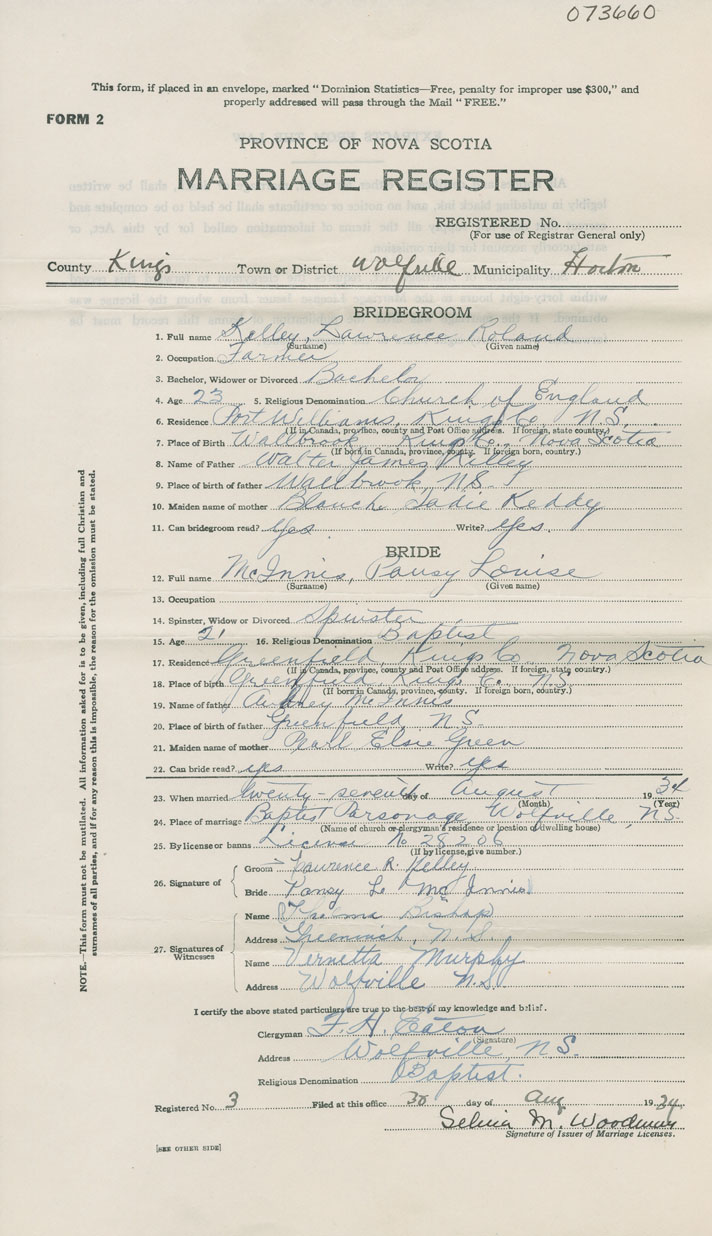 073660
This form, if placed in an envelope, marked "Dominion Statistics—Free, penalty for improper use $300," and
properly addressed will pass through the Mail "FREE."
FORM 2
PROVINCE OF NOVA SCOTIA
MARRIAGE REGISTER
REGISTERED No.
(For use of Registrar General only)
County Kings Town or District Wolfville Municipality Horton
BRIDEGROOM
1. Full name Kelley, Lawrence Roland
(Surname) (Given name)
2. Occupation Farmer
3. Bachelor, Widower or Divorced Bachelor
4. Age 23 5. Religious Denomination Church of England
6. Residence Port Williams, Kings Co., N.S.
(If in Canada, province, county and Post Office address. If foreign, state country.)
7. Place of Birth Wallbrook Kings Co., Nova Scotia
(If born in Canada, province, county. If foreign born, country.)
8. Name of Father Walter James Kelley
9. Place of birth of father Wallbrook, N.S.
10. Maiden name of mother Blanch Sadie Keddy
11. Can bridegroom read? Yes Write? Yes.
BRIDE
12. Full name McInnis, Pansy Louise
(Surname) (Given name)
13. Occupation
14. Spinster, Widow or Divorced Spinster
15. Age 21 16. Religious Denomination Baptist
17. Residence Greenfield, Kings Co., Nova Scotia
(If in Canada, province, county and Post Office address. If foreign, state country.)
18. Place of birth Greenfield, Kings C. N.S.
(If born in Canada, province, county. If foreign born, country.)
19. Name of father McInnis
20. Place of birth of father Greenfield, N.S.
21. Maiden name of mother Pearl Elsie Green
22. Can bride read? yes Write? yes
23. When married twenty-seventh day of August 1934
(Month) (Year)
24. Place of marriage Baptist Parsonage, Wolfville, N.S.
(Name of church or clergyman's residence or location of dwelling house)
25. By license or banns License No 28206
(If by license, give number.)
26. Signature of Groom Lawrence R. Kelley
Bride Pansy L. McInnis
27. Signatures of Witnesses
Name Thelma Bishop
Address Greenwich, N.S.
Name Vernetta Murphy
Address Wolfville N.S.
I certify the above stated particulars are true to the best of my knowledge and belief.
Clergyman F. H. Eaton
(Signature)
Address Wolfville, N.S.
Religious Denomination Baptist.
Registered No. 3 Filed at this office 30 day of Aug 1934
M. Woodman
Signature of Issuer of Marriage Licenses.
[SEE OTHER SIDE]
NOTE.—This form must not be mutilated. All information asked for is to be given, including full Christian and
surnames of all parties, and if for any reason this is impossible, the reason for the omission must be stated.